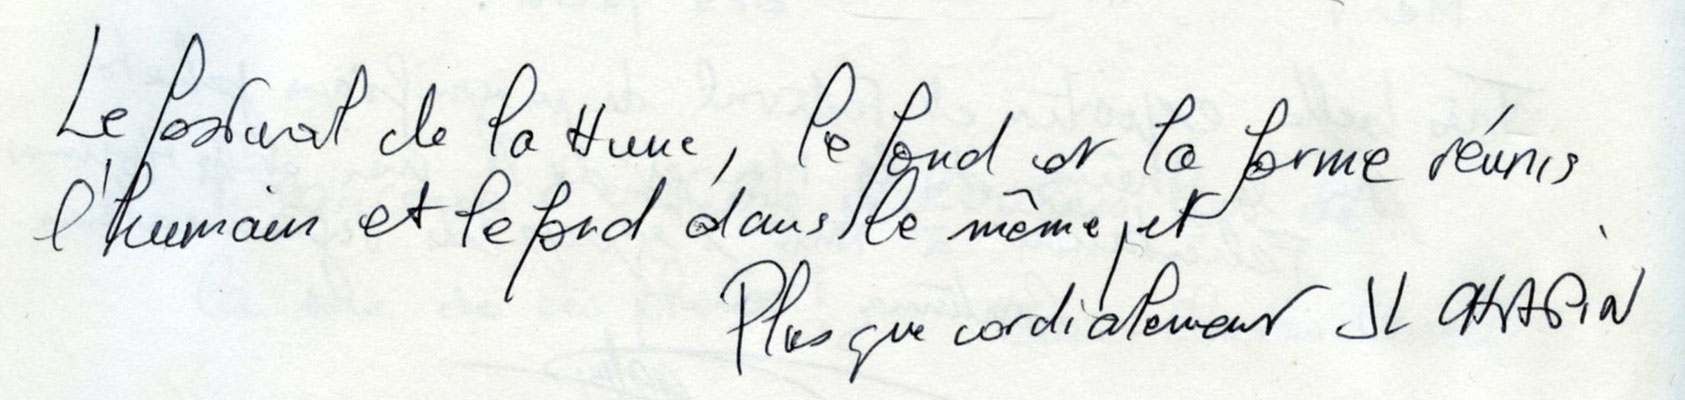 Le festival de la Hune, le fond et la forme réunis
l'humain et le fond dans le même jet
Plus que cordialement JL CHAPIN